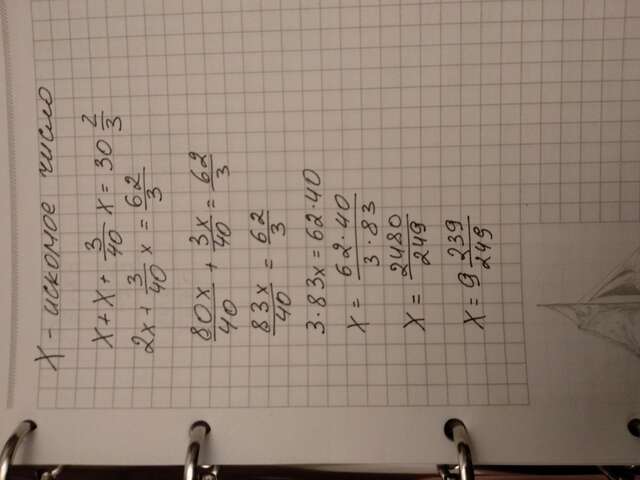 X - искомое число
x + x + 3/40 x = 30 2/3
2x + 3/40 x = 62/3
80x/40 + 3x/40 = 62/3
83x/40 = 62/3
3·83x = 62·40
x = 62·40/3·83
x = 2480/249
x = 9 239/249